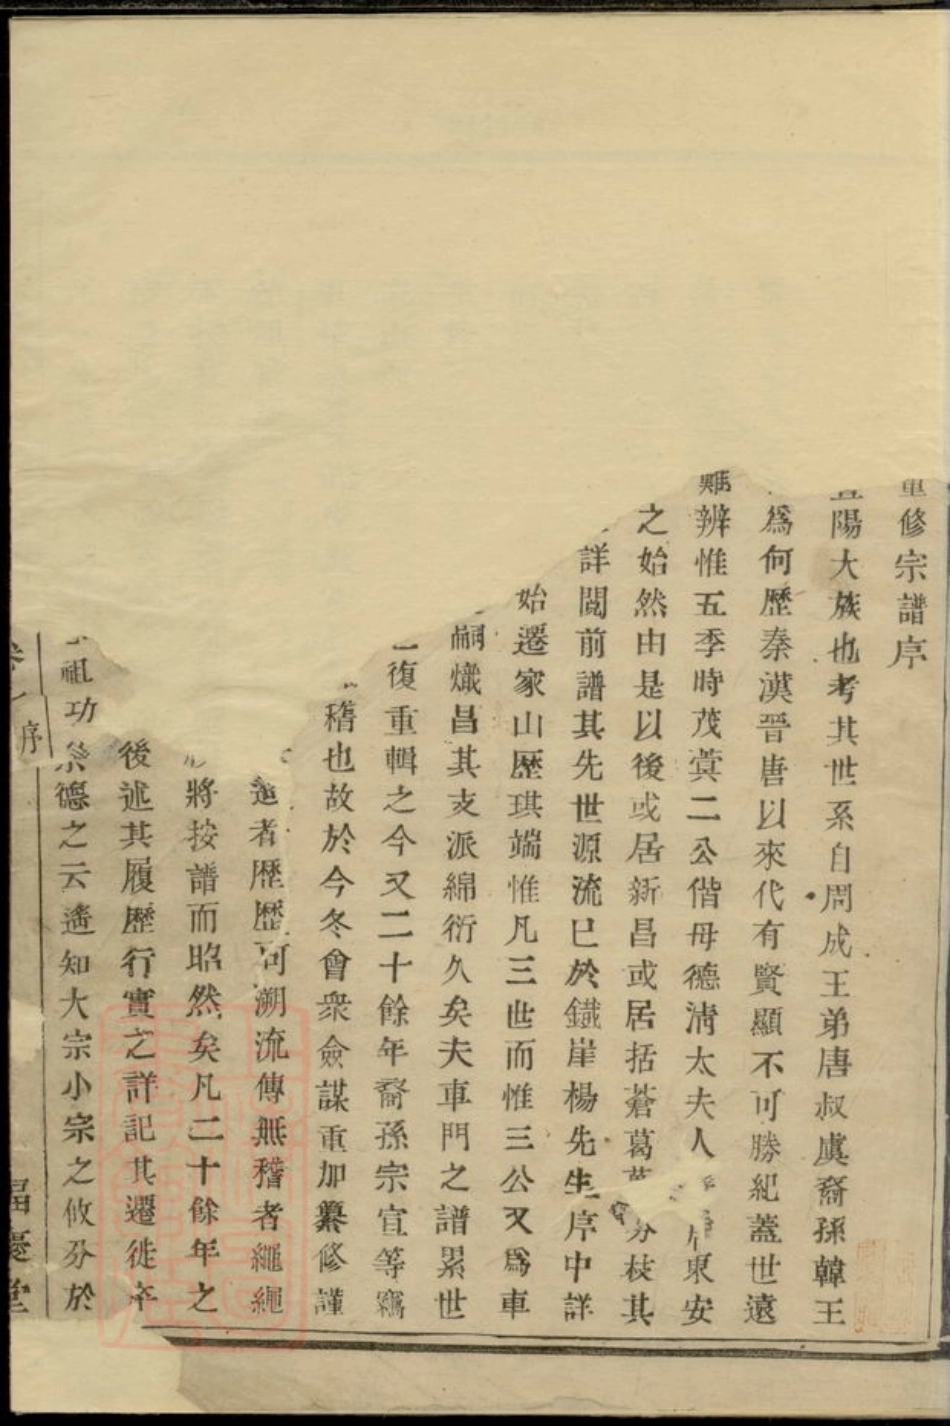 重修宗譜序
陽大族也考其世系自周成王弟唐叔虞裔孫韓王
爲何歷秦漢晉唐以來代有賢顯不可勝紀蓋世遠
難辨惟五季時茂蓂二公偕母德淸太夫人居東安
之始然由是以後或居新昌或居括蒼葛分枝其
詳閱前譜其先世源流已於鐵崖楊先生序中詳
始遷家山歷琪端惟凡三世而惟三公又爲車
嗣熾昌其支派綿衍久矣夫車門之譜累世
復重輯之今又二十餘年裔孫宗宣等竊
稽也故於今冬會衆僉謀重加纂修謹
遠者歷歷可溯流傳無稽者繩繩
將按譜而昭然矣凡二十餘年之
後述其履歷行實之詳記其遷徙卒
祖功宗德之云遙知大宗小宗之攸分於
序
福慶堂